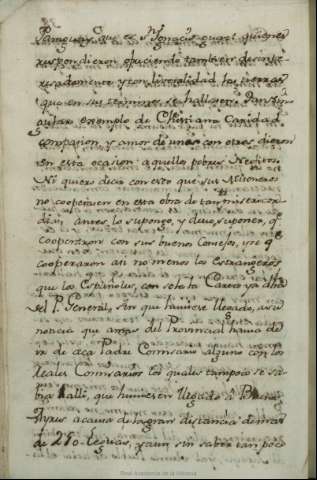 Paraguay, que es Sn. Ignacio guazú quienes
respondieron ofreciendo tambien desinte-
resadamente y con liberalidad las tierras
que en sus terminos se hallasen.
exemplo de Christiana Caridad
compasion, y amor de unos con otros dieron
en esta ocasion aquellos pobres Neofitos.
Ni quiero decir con esto que sus Misioneros
no cooperasen en esta obra de tanta misericor-
dia. Antes, lo supongo, y devo suponer, qe.
cooperaron con sus buenos consejos, y se qe.
cooperaron asi no menos los estrangeros
que los Españoles, con sola la Carta ya dha
del P. General, sin que huviese llegado, ni su
noticia que antes del Provincial havia de
ir de acá Padre Comisario alguno con los
Reales Comisarios los quales tampoco se sa-
bia alli, que huviesen llegado à Buenos
Ayres a causa de la gran distancia de mas
de 210 leguas, y aun sin saber tampoco
Real Academia de la Historia